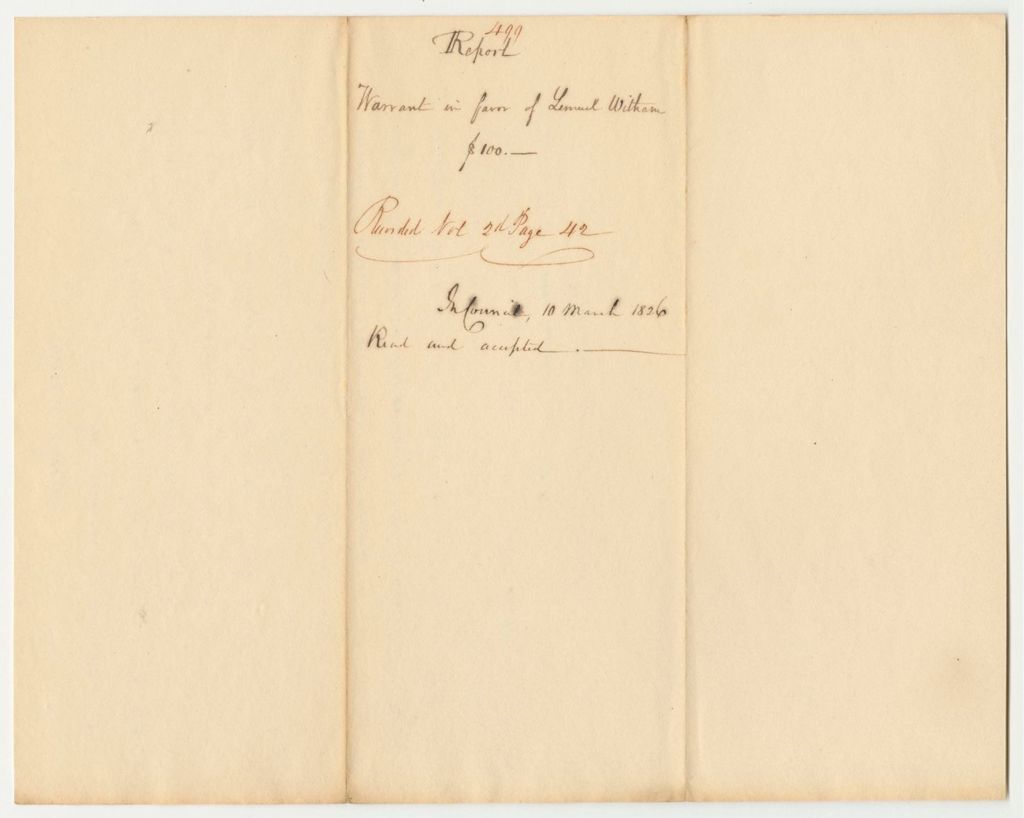 499
Report
Warrant in favor of Lemuel Witham
$100.—
Recorded Vol 2d Page 42
In Council, 10 March 1826
Read and accepted.—